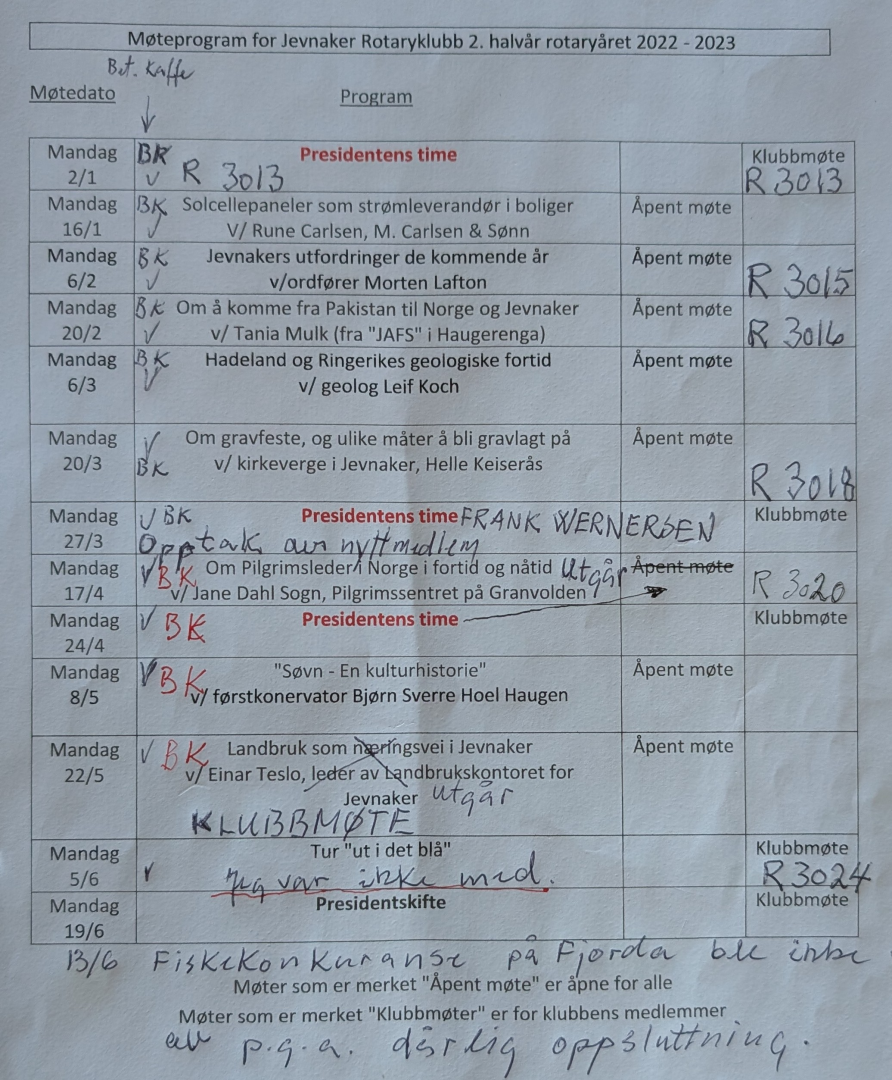 Møteprogram for Jevnaker Rotaryklubb 2. halvår rotaryåret 2022 - 2023
Bet. Kaffe
Møtedato Program
Mandag BK Presidentens time Klubbmøte
2/1 R 3013 R 3013
Mandag BK Solcellepaneler som strømleverandør i boliger Åpent møte
16/1 V/ Rune Carlsen, M. Carlsen & Sønn
Mandag BK Jevnakers utfordringer de kommende år Åpent møte
6/2 v/ordfører Morten Lafton R 3015
Mandag BK Om å komme fra Pakistan til Norge og Jevnaker Åpent møte
20/2 v/ Tania Mulk (fra "JAFS" i Haugerenga) R 3016
Mandag BK Hadeland og Ringerikes geologiske fortid Åpent møte
6/3 v/ geolog Leif Koch
Mandag Om gravfeste, og ulike måter å bli gravlagt på Åpent møte
20/3 BK v/ kirkeverge i Jevnaker, Helle Keiserås
R 3018
Mandag BK Presidentens time FRANK WERNERSEN Klubbmøte
27/3 Opptak av nytt medlem
Mandag BK Om Pilgrimsleder i Norge i fortid og nåtid Utgår Åpent møte
17/4 v/ Jane Dahl Sogn, Pilgrimssentret på Granvolden R 3020
Mandag BK Presidentens time Klubbmøte
24/4
Mandag BK "Søvn - En kulturhistorie" Åpent møte
8/5 v/ førstkonervator Bjørn Sverre Hoel Haugen
Mandag BK Landbruk som næringsvei i Jevnaker Åpent møte
22/5 v/ Einar Teslo, leder av Landbrukskontoret for
Jevnaker utgår
KLUBBMØTE
Mandag Tur "ut i det blå" Klubbmøte
5/6 Jeg var ikke med. R 3024
Mandag Presidentskifte Klubbmøte
19/6
13/6 Fiskekonkuranse på Fjorda ble ikke
Møter som er merket "Åpent møte" er åpne for alle
Møter som er merket "Klubbmøter" er for klubbens medlemmer
av p.g.a. dårlig oppsluttning.